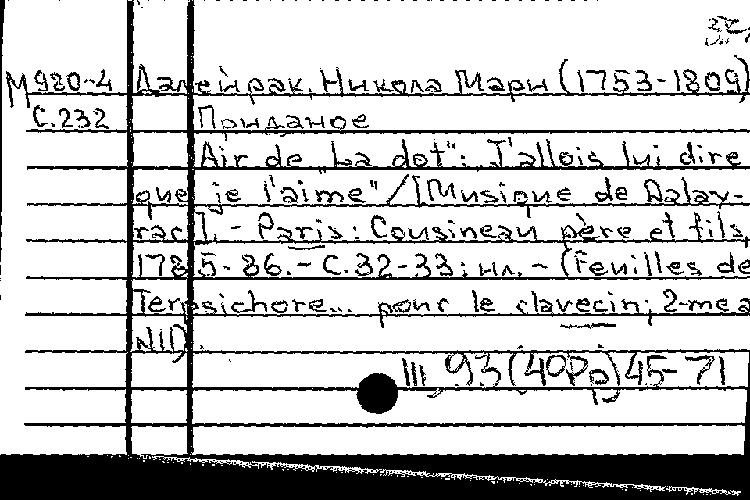 М980-4 Далейрак, Никола Мари (1753-1809)
С.232 Приданое
Air de "La dot": J'allois lui dire
que je l'aime" / [Musique de Dalay-
rac]. - Paris: Cousineau père et fils,
1785-86. - С.32-33; ил. - (Feuilles de
Terpsichore... pour le clavecin; 2-me a
N11).
III, 93 (40Рр) 45-71